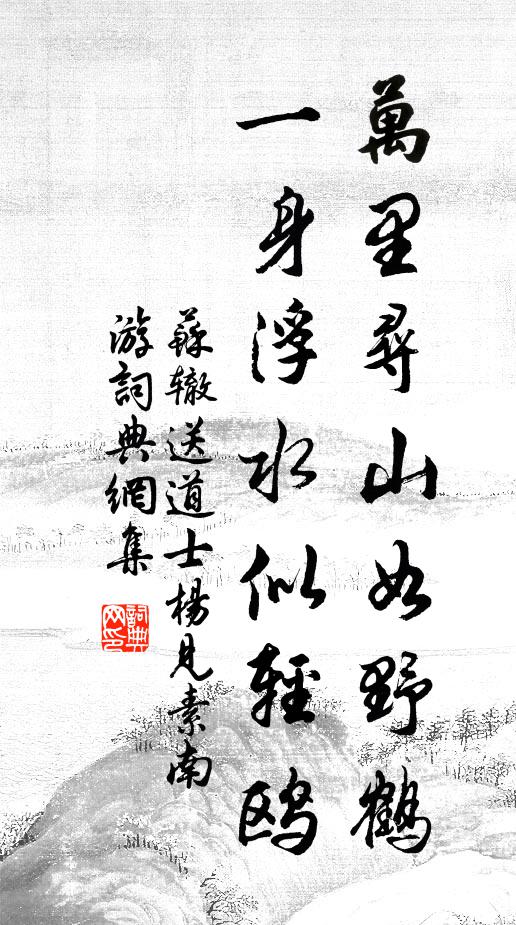 萬里尋山如野鶴
一身浮水似輕鸥
蘇辙送道士楊見素南
游詞典網集
詞典网印